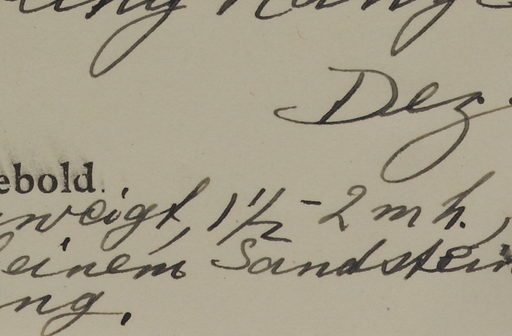 Dez.
ebold.
rweigt, 1 1/2 - 2 m h.,
einem Sandstein
ng.